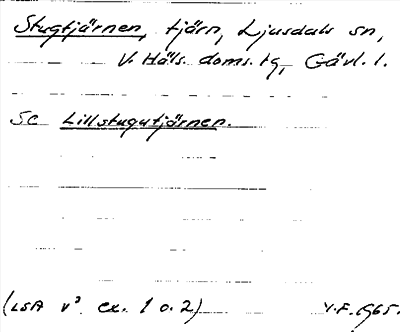 Stugtjärnen, tjärn, Ljusdals sn,
V. Häls. doms. tg, Gävl. l.
Se Lillstugutjärnen.
(LSA V³ ex. 1 o. 2) V.F. 1965.